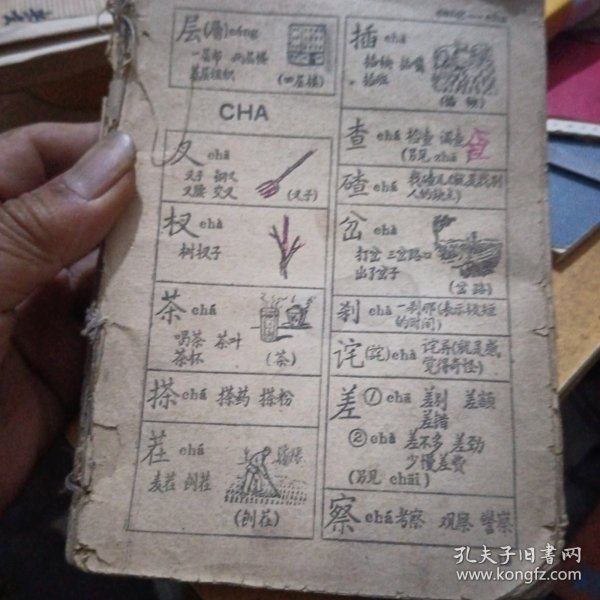 层(層)céng
一层布 两层楼
基层组织
(四层楼)
CHA
叉 chā
叉子 钢叉
叉腰 交叉
(叉子)
杈 chà
树杈子
茶 chá
喝茶 茶叶
茶杯
(茶)
搽 chá 搽药 搽粉
茬 chá
麦茬 刨茬
(刨茬)
插 chā
插秧 插嘴
插班
(插秧)
查 chá 检查 调查
(另见 zhā
碴 chá
人的缺点)
岔 chà
打岔 三岔路口
出了岔子
(岔路)
刹 chà 一刹那(表示很短
的时间)
诧(詫)chà 诧异(就是感
觉得奇怪)
差 ① chā 差别 差额
差错
② chà 差不多 差劲
少慢差费
(另见 chāi)
察 chá 考察 观察 警察
孔夫子旧书网
www.kongfz.com